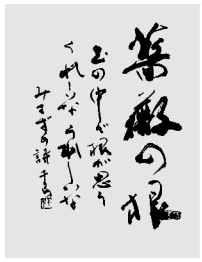 薔薇の根
土の中で根が思う
うれしいな うれしいな
みすずの詩